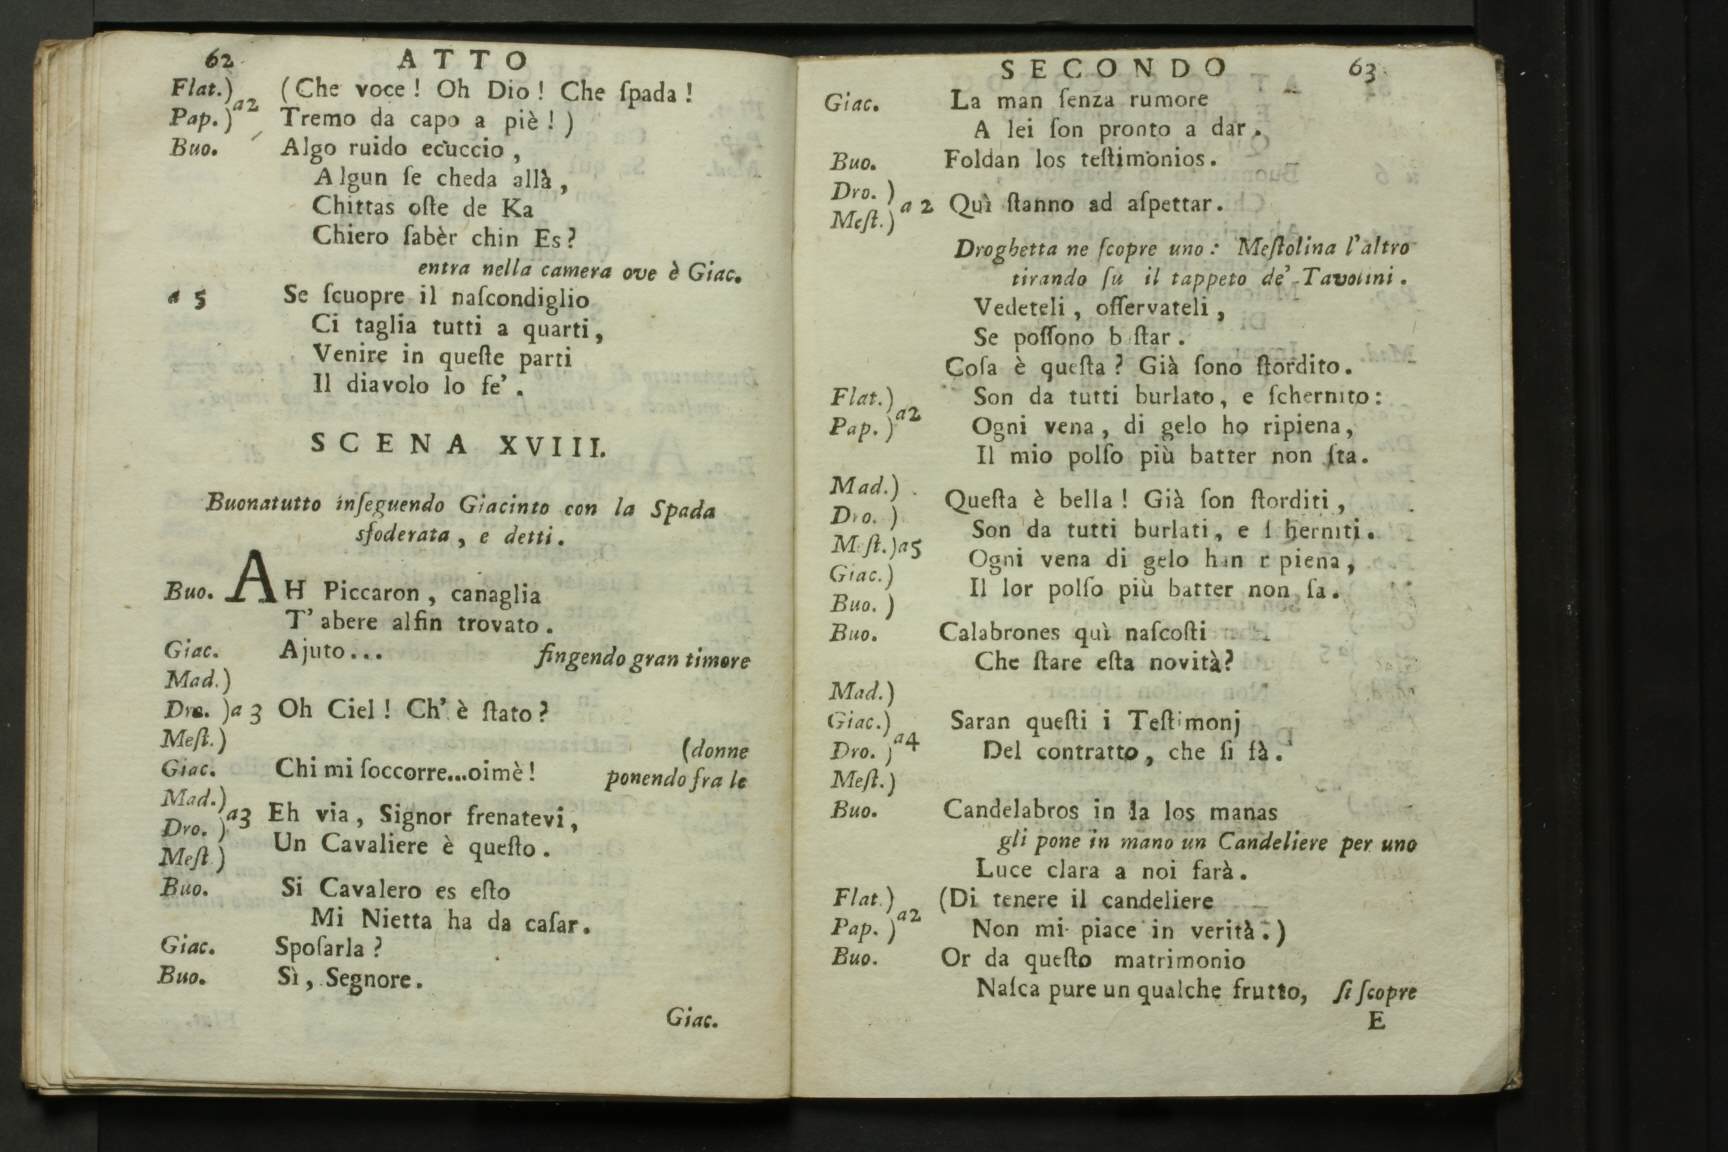 62 ATTO
Flat.) (Che voce! Oh Dio! Che ſpada!
a2
Pap.) Tremo da capo a piè!)
Buo. Algo ruido ecuccio,
Algun ſe cheda allà,
Chittas oſte de Ka
Chiero ſabèr chin Es?
entra nella camera ove è Giac.
a 5 Se ſcuopre il naſcondiglio
Ci taglia tutti a quarti,
Venire in queſte parti
Il diavolo lo fe'.
SCENA XVIII.
Buonatutto inſeguendo Giacinto con la Spada
sfoderata, e detti.
Buo. AH Piccaron, canaglia
T' abere alfin trovato.
Giac. Ajuto... fingendo gran timore
Mad.)
Dro. )a 3 Oh Ciel! Ch' è ſtato?
Meſt.) (donne
Giac. Chi mi ſoccorre...oimè! ponendo fra le
Mad.)
a3 Eh via, Signor frenatevi,
Dro. )
Un Cavaliere è queſto.
Meſt.)
Buo. Si Cavalero es eſto
Mi Nietta ha da caſar.
Giac. Spoſarla?
Buo. Sì, Segnore.
Giac.
SECONDO 63
Giac. La man ſenza rumore
A lei ſon pronto a dar.
Buo. Foldan los teſtimonios.
Dro. )
a 2 Quì ſtanno ad aſpettar.
Meſt.)
Droghetta ne ſcopre uno: Meſtolina l'altro
tirando ſu il tappeto de' Tavolini.
Vedeteli, oſſervateli,
Se poſſono b ſtar.
Coſa è queſta? Già ſono ſtordito.
Flat.) Son da tutti burlato, e ſchernito:
a2
Pap. ) Ogni vena, di gelo ho ripiena,
Il mio polſo più batter non ſta.
Mad.)
Queſta è bella! Già ſon ſtorditi,
Dro. )
Son da tutti burlati, e ſ herniti.
M ſt.)a5
Ogni vena di gelo han r piena,
Giac.)
Il lor polſo più batter non ſa.
Buo. )
Buo. Calabrones quì naſcoſti
Che ſtare eſta novità?
Mad.)
Giac.) Saran queſti i Teſtimonj
a4
Dro. ) Del contratto, che ſi fà.
Meſt.)
Buo. Candelabros in la los manas
gli pone in mano un Candeliere per uno
Luce clara a noi farà.
Flat.) (Di tenere il candeliere
a2
Pap. ) Non mi piace in verità.)
Buo. Or da queſto matrimonio
Naſca pure un qualche frutto, ſi ſcopre
E